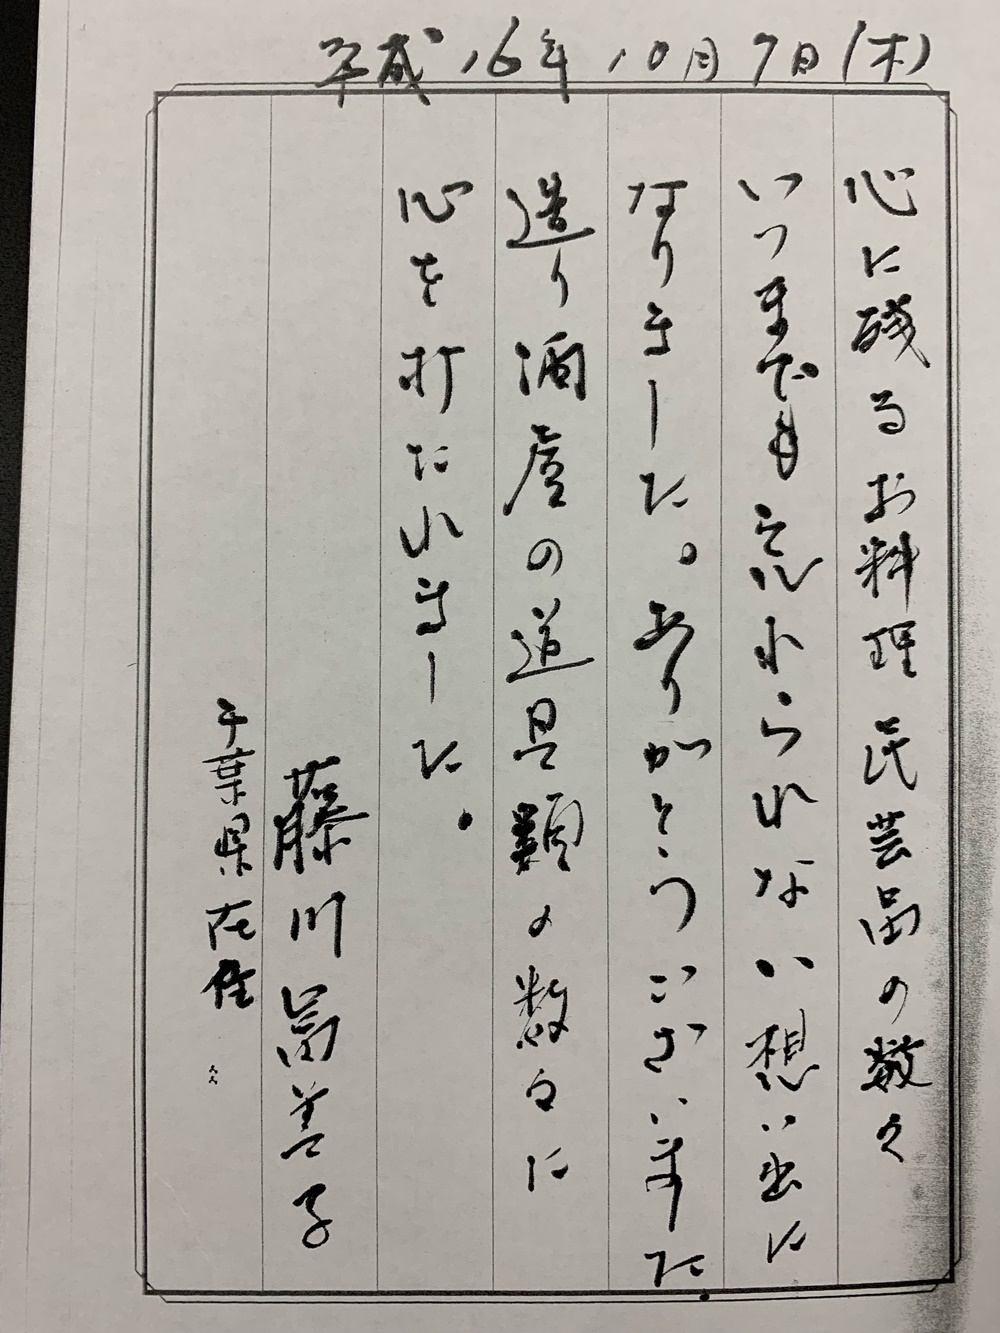 平成16年10月7日(木)
心に残るお料理 民芸品の数々
いつまでも忘れられない想い出に
なりました。ありがとうございました。
造り酒屋の道具類の数々に
心を打たれました。
藤川富美子
千葉県在住